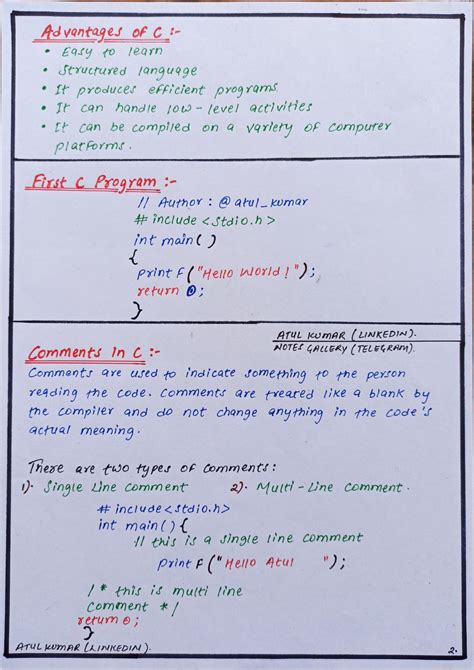 Advantages of C :-
• Easy to learn
• Structured language
• It produces efficient programs
• It can handle low-level activities
• It can be compiled on a variety of computer
platforms.
First C Program :-
// Author : @atul_kumar
# include <stdio.h>
int main( )
{
printf ("Hello World!");
return 0;
}
ATUL KUMAR (LINKEDIN).
NOTES GALLERY (TELEGRAM).
Comments in C :-
Comments are used to indicate something to the person
reading the code. Comments are treated like a blank by
the compiler and do not change anything in the code's
actual meaning.
There are two types of comments:
1). Single Line comment 2). Multi-Line comment.
# include <stdio.h>
int main() {
// this is a single line comment
printf ("Hello Atul ");
/* this is multi line
comment */
return 0;
}
ATUL KUMAR (LINKEDIN).
2.